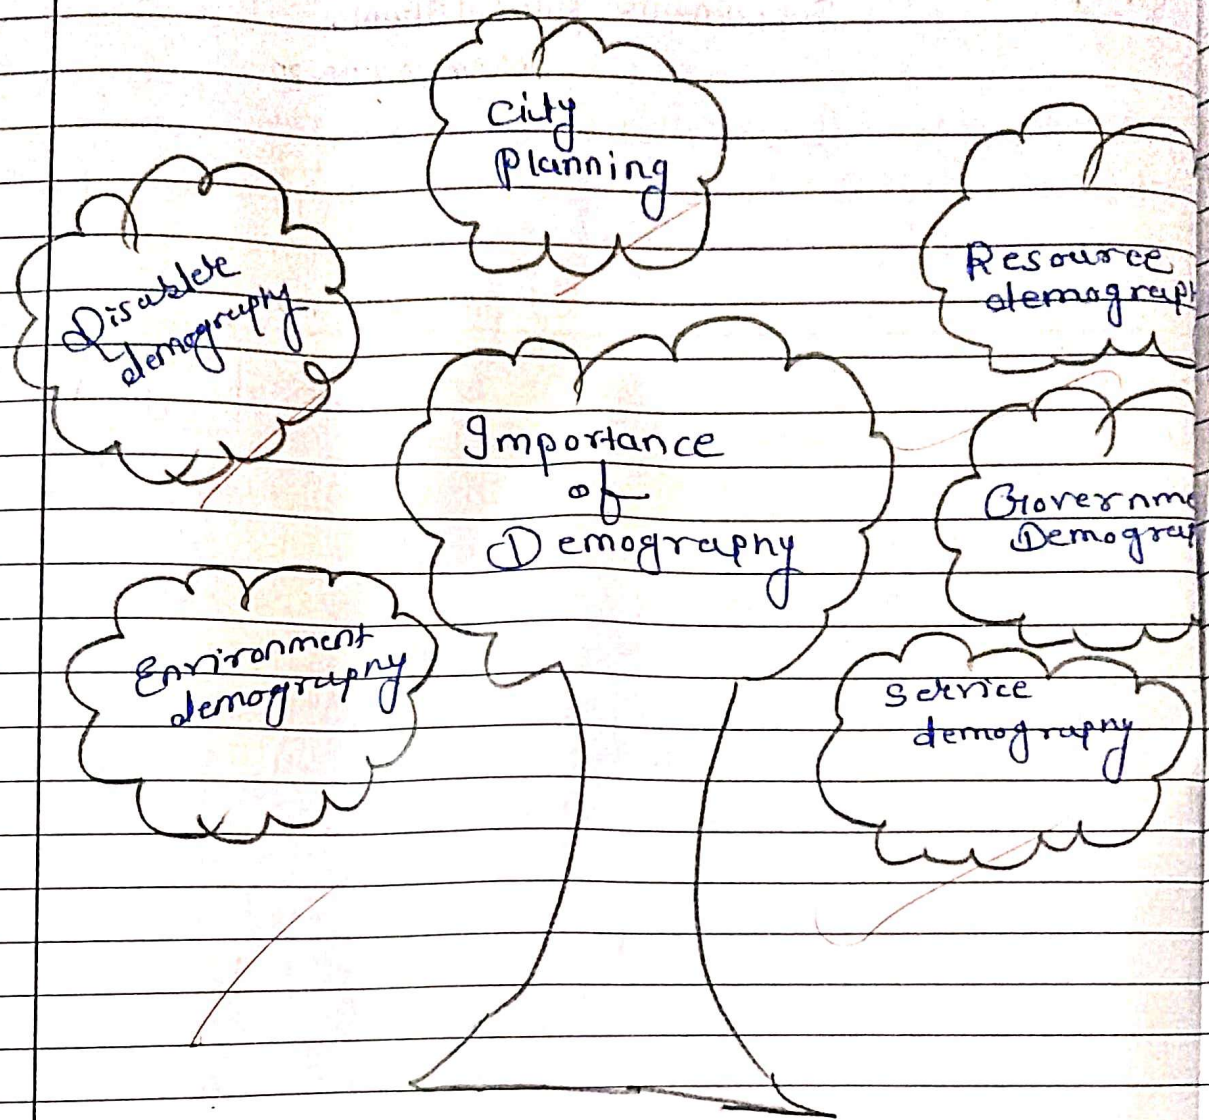 City
Planning
Disablete
demography
Resource
demograph
Importance
of
Demography
Governme
Demograp
Environment
demography
Service
demography